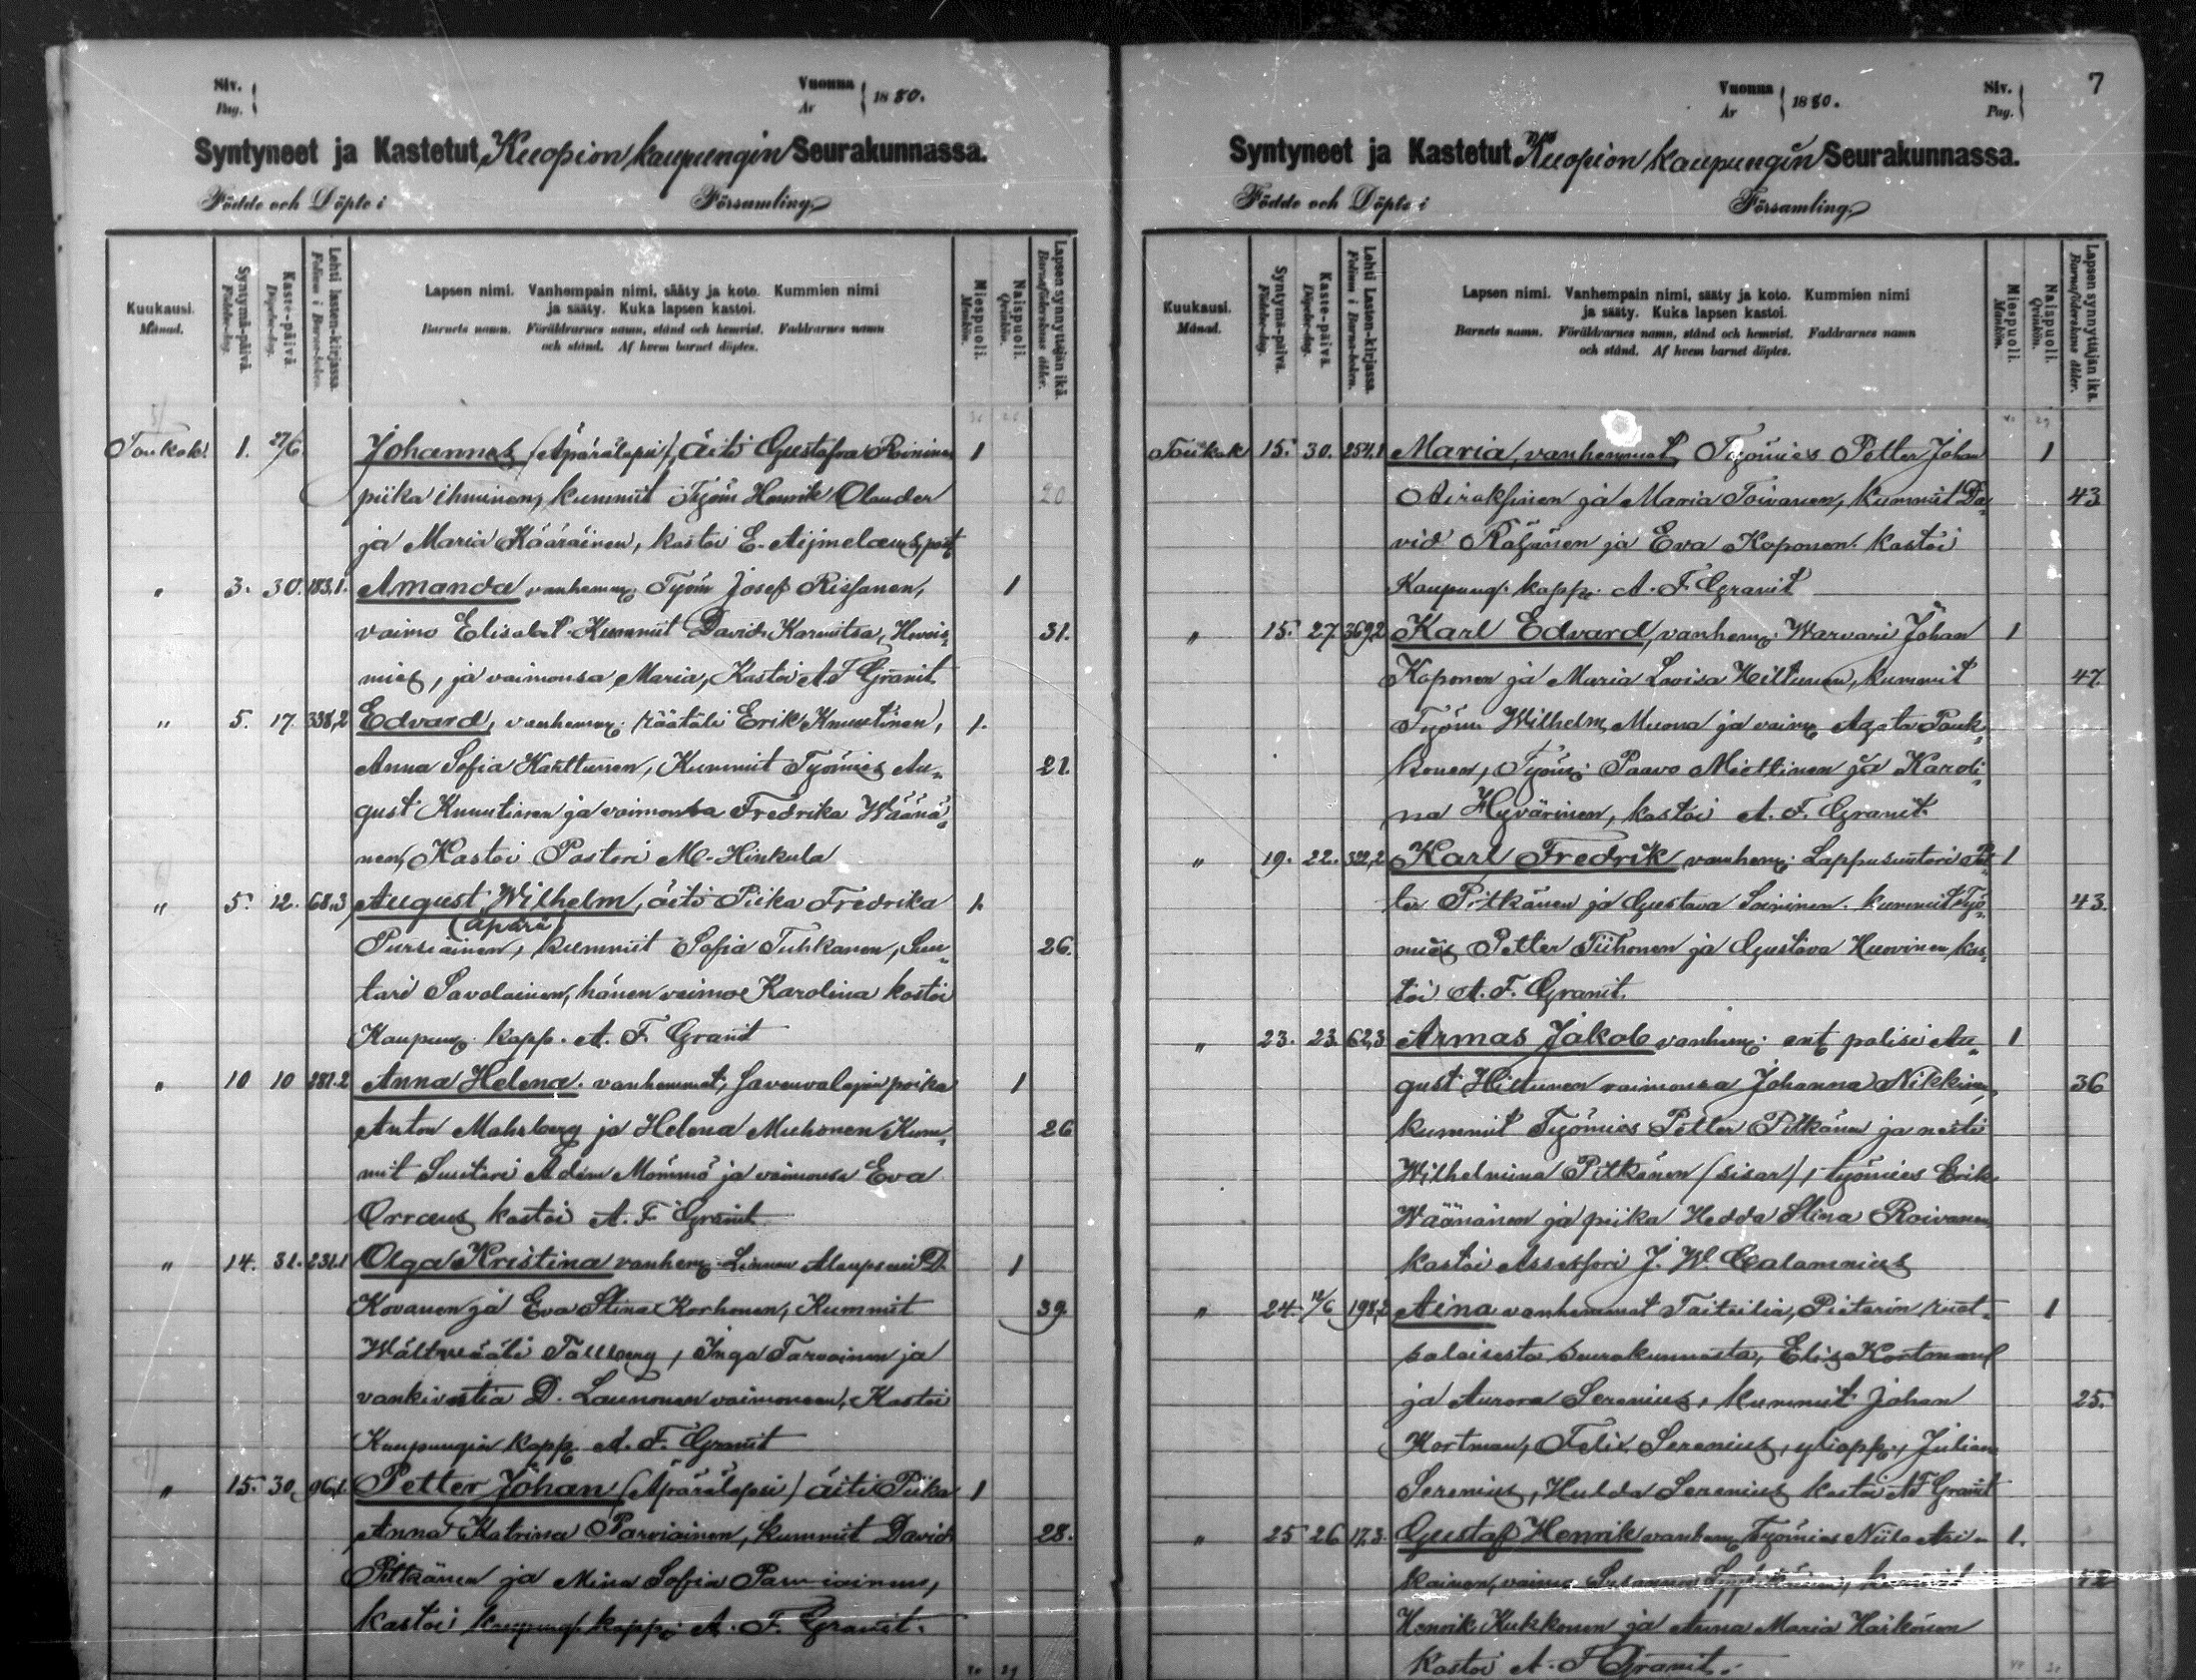 Siv.
Pag.
Vuonna
År
1880.
Syntyneet ja Kastetut Kuopion kaupungin Seurakunnassa.
Födde och Döpte i Församling
Kuukausi.
Månad.
Syntymä-päivä.
Födelse-dag.
Kaste-päivä.
Döpelse-dag.
Lehti lasten-kirjassa.
Folium i Barna-boken.
Lapsen nimi. Vanhempain nimi, sääty ja koto. Kummien nimi
ja sääty. Kuka lapsen kastoi.
Barnets namn. Föräldrarnes namn, stånd och hemvist. Faddrarnes namn
och stånd. Af hvem barnet döptes.
Miespuoli.
Mankön.
Naispuoli.
Qvinkön.
Lapsen synnyttäjän ikä.
Barnaföderskans ålder.
Toukok. 1. 27/6 Johannes (Äpärälapsi), äiti Gustafva Roininen 1
piika ihminen, kummit Työm Henrik Olander 20
ja Maria Kääräinen, kastoi E. Aijmelaeus, past
" 3. 30. 183,1. Amanda vanhemm. Työm Josef Rissanen, 1
vaimo Elisabet. Kummit David Karvitsa, 31.
mies, ja vaimonsa Maria, Kastoi A F Granit
" 5. 17. 338,2 Edvard, vanhemm. räätäli Erik Knuutinen, 1.
Anna Sofia Karttunen, Kummit Työmies Au- 21.
gust Knuutinen ja vaimonsa Fredrika Wäänä-
nen, Kastoi Pastori M. Hinkula
" 5. 12. 68,3 August Wilhelm, äiti Piika Fredrika 1.
(äpärä)
Pursiainen, kummit Sofia Tuhkanen, Suu- 26.
tari Savolainen, hänen vaimoe Karolina kastoi
Kaupung. kapp. A. F. Granit
" 10 10 281.2 Anna Helena. vanhemmat, Savenvalajan poika 1
Anton Mahrberg ja Helena Muhonen Kum- 26
mit Suutari Adam Mömmö ja vaimonsa Eva
Orraeus kastoi A. F. Granit
" 14. 31. 231.1 Olga Kristina vanhem. Linnan Alaupseeri D. 1
Kovanen ja Eva Stina Korhonen, Kummit 39.
Wältvääpeli Tallberg, Inga Tarvainen ja
vankivartia D. Launonen vaimoneen, Kastoi
Kaupungin kapp. A. F. Granit
" 15. 30. 96,1. Petter Johan (Äpärälapsi) äiti Piika 1
Anna Katrina Parviainen, kummit David 28.
Pitkänen ja Mina Sofia Parviainen,
kastoi kaupung. kapp. A. F. Granit.
7
Vuonna
År
1880.
Siv.
Pag.
Syntyneet ja Kastetut Kuopion kaupungin Seurakunnassa.
Födde och Döpte i Församling
Kuukausi.
Månad.
Syntymä-päivä.
Födelse-dag.
Kaste-päivä.
Döpelse-dag.
Lehti Lasten-kirjassa.
Folium i Barna-boken.
Lapsen nimi. Vanhempain nimi, sääty ja koto. Kummien nimi
ja sääty. Kuka lapsen kastoi.
Barnets namn. Föräldrarnes namn, stånd och hemvist. Faddrarnes namn
och stånd. Af hvem barnet döptes.
Miespuoli.
Mankön.
Naispuoli.
Qvinkön.
Lapsen synnyttäjän ikä.
Barnaföderskans ålder.
Toukok 15. 30. 254,1 Maria, vanhemmat Työmies Petter Johan 1
Airaksinen ja Maria Toivanen, kummit Da- 43
vid Räsänen ja Eva Koponen. kastoi
Kaupung. kapp. A. F. Granit
" 15. 27 369,2 Karl Edvard, vanhem. Warvari Johan 1
Koponen ja Maria Lovisa Hiltunen, kummit 47.
Työm Wilhelm Muona ja vaimo Agata Pouk-
konen, Työm. Paavo Miettinen ja Karoli-
na Hyvärinen, kastoi A. F. Granit.
" 19. 22. 322,2 Karl Fredrik, vanhem. Lappusuutari Pet- 1
ter Pitkänen ja Gustava Soininen. kummit Työ- 43.
mies Petter Tiihonen ja Gustava Huovinen, kas-
toi A. F. Granit.
" 23. 23. 62,3 Armas Jakob vanhem. ent. polisi Au- 1
gust Hiltunen vaimonsa Johanna Nikkinen, 36
kummit Työmies Petter Pitkänen ja neiti
Wilhelmina Pitkänen (sisar), työmies Erik
Wäänänen ja piika Hedda Stina Roivanen
kastoi Assessori J. W. Calamnius
" 24. 12/6 198,2 Aina vanhemmat Taiteilia, Pietarin ruot-
salaisesta seurakunnasta, Elis Kortman 1
ja Aurora Serenius, kummit Johan 25.
Kortman, Felix Serenius, yliopp., Juliana
Serenius, Hulda Serenius kastoi A F Granit
" 25 26 17,3. Gustaf Henrik vanhem. Työmies Niilo Asi- 1.
kainen, vaimo Susanna kummit
Henrik Kukkonen ja Anna Maria Härkönen
kastoi A. F Granit.